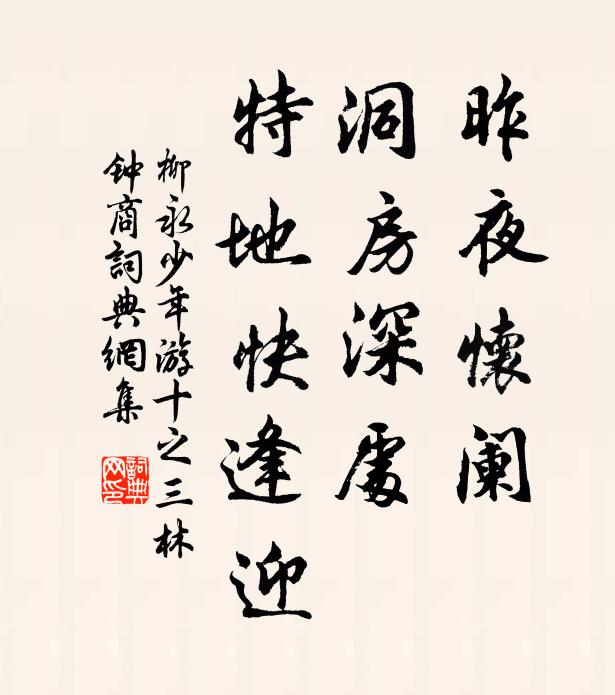 昨夜懷闌
洞房深處
特地快逢迎
柳永少年游十之三林
钟商詞典網集
詞典
网印